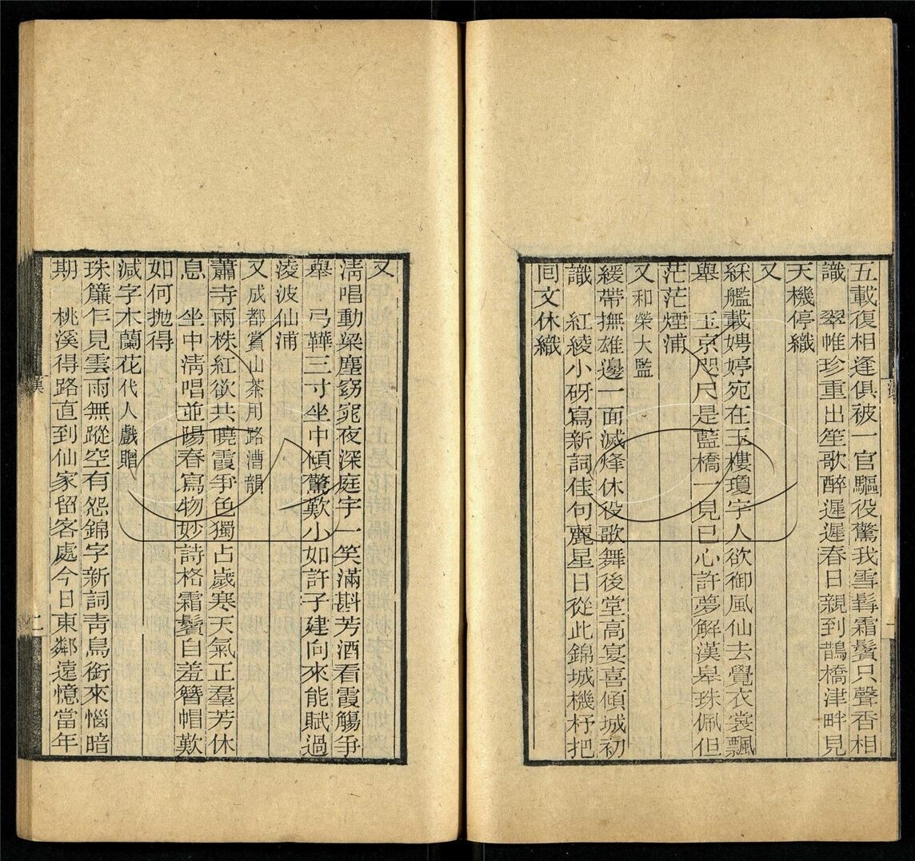 五載復相逢俱被一官驅役驚我雪髯霜鬢只聲香相
識　翠帷珍重出笙歌醉遲遲春日親到鵲橋津畔見
天機停織
又
綵艦載娉婷宛在玉樓瓊宇人欲御風仙去覺衣裳飄
舉　玉京咫尺是藍橋一見已心許夢解漢皋珠佩但
茫茫煙浦
又和榮大監
緩帶撫雄邊一面滅烽休役歌舞後堂高宴喜傾城初
識　紅綾小硏寫新詞佳句麗星日從此錦城機杼把
回文休織
又
清唱動梁塵窈窕夜深庭宇一笑滿斟芳酒看霞觴爭
舉　弓鞾三寸坐中傾驚歎小如許子建向來能賦過
淩波仙浦
又成都賞山茶用路漕韻
蕭寺兩株紅欲共曉霞爭色獨占歲寒天氣正羣芳休
息　坐中清唱並陽春寫物妙詩格霜鬢自羞簪帽歎
如何抛得
減字木蘭花代人戲贈
珠簾乍見雲雨無蹤空有怨錦字新詞靑鳥銜來惱暗
期　桃溪得路直到仙家留客處今日東鄰遠憶當年